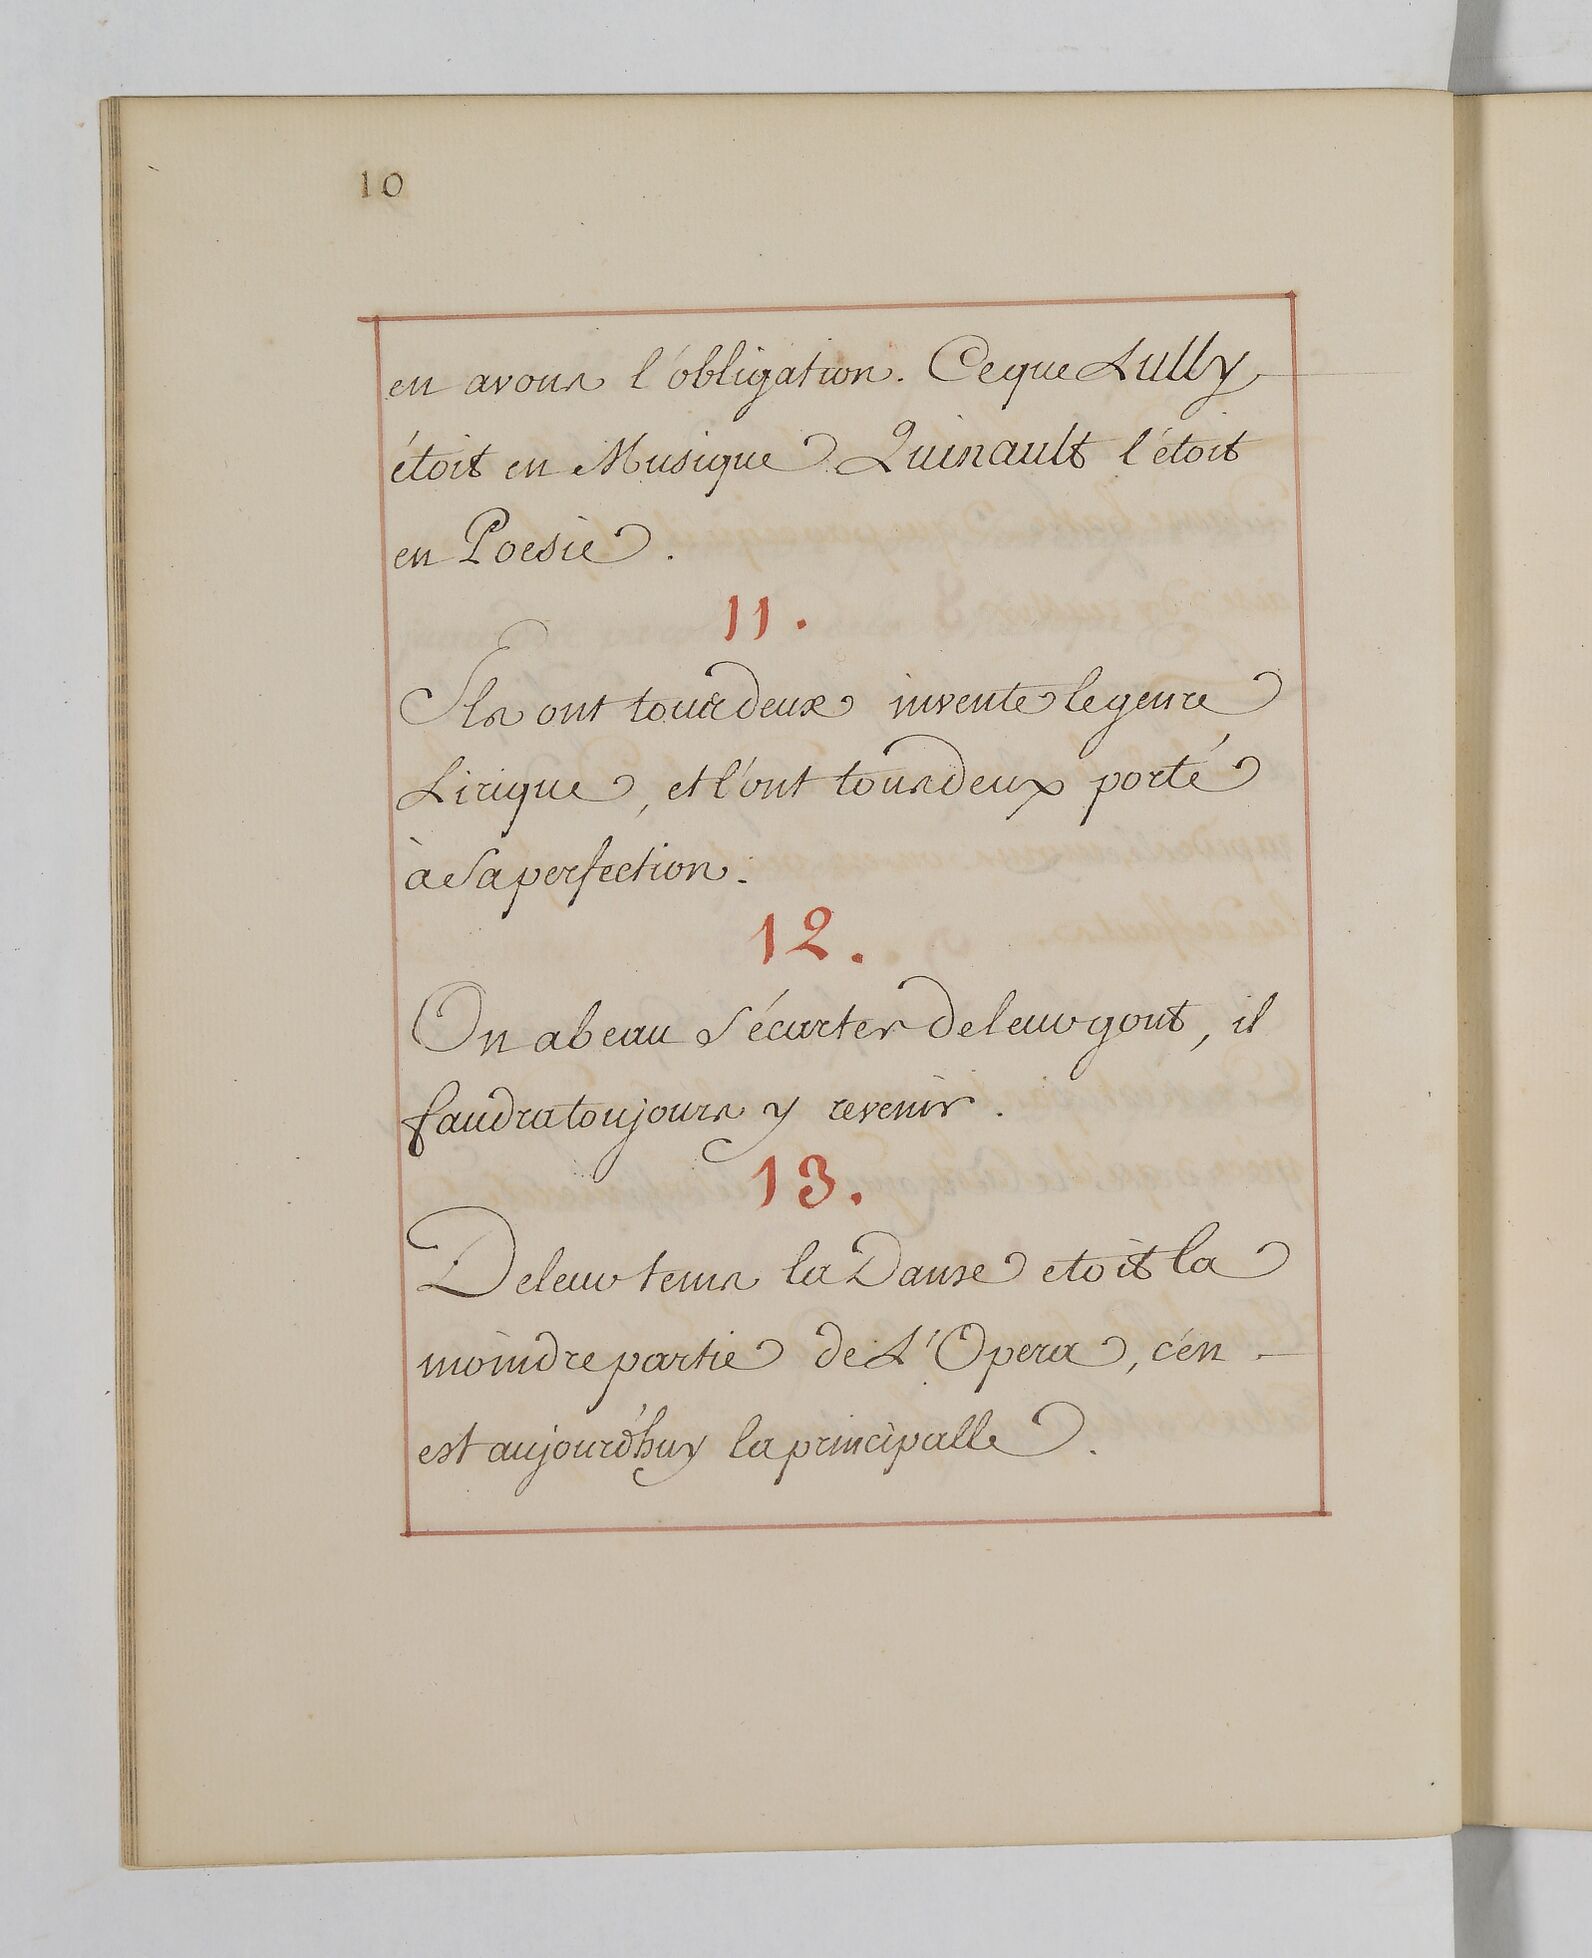 10
en avons l'obligation. Ce que Lully
étoit en Musique Quinault l'étoit
en Poesie.
11.
Ils ont tous deux inventé le genre
Lirique, et l'ont tous deux porté
à Sa perfection.
12.
On a beau S'écarter de leur gout, il
faudra toujours y revenir.
13.
De leur tems la Danse etoit la
moindre partie de L'Opera, c'en
est aujourd'huy la principalle.